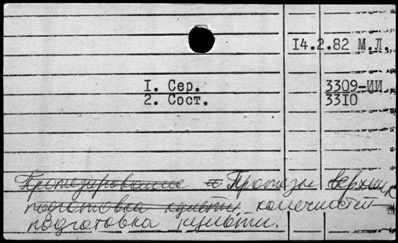 14.2.82 М.Л.
I. Сер. 3309-ИИ
2. Сост. 3310
Протезирование и Протезы верхних
подготовка культи конечностей
подготовка культи.